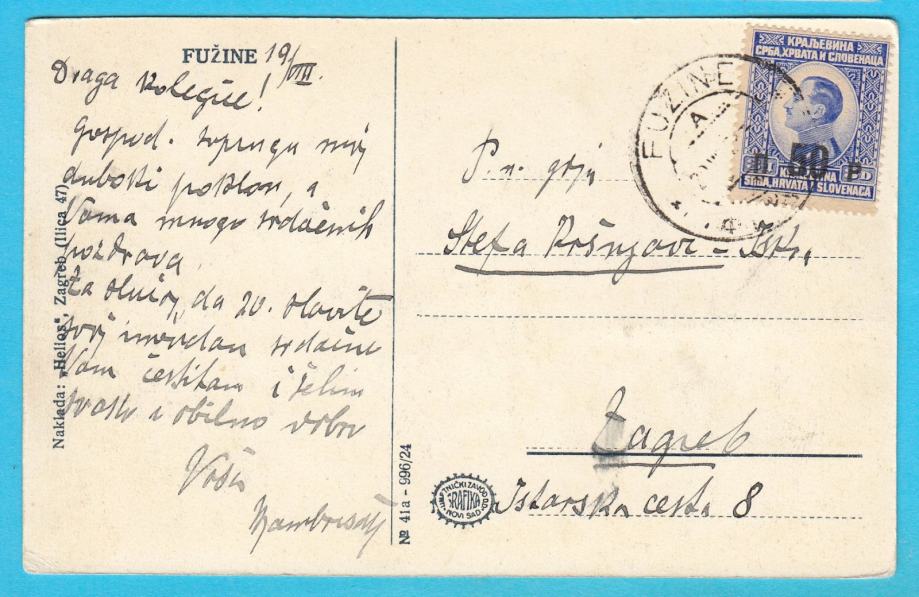 FUŽINE 19/VIII.
Draga kolegice!
Gospod. suprugu moj
duboki poklon, a
Vama mnogo srdačnih
pozdrava.
Za slučaj, da 20. slavite
svoj imendan srdačno
Vam čestitam i želim
svako i obilno dobro
Vaša
Naklada: „Helios", Zagreb (Ilica 47)
№ 41a - 996/24
UMJETNIČKI ZAVOD D.D.
GRAFIKA
NOVI SAD
КРАЉЕВИНА
СРБА, ХРВАТА И СЛОВЕНАЦА
П. 50 Р
KRALJEVINA
SRBA, HRVATA I SLOVENACA
FUŽINE
A
P. n. gdja
Stefa
Zagreb
Istarska cesta 8